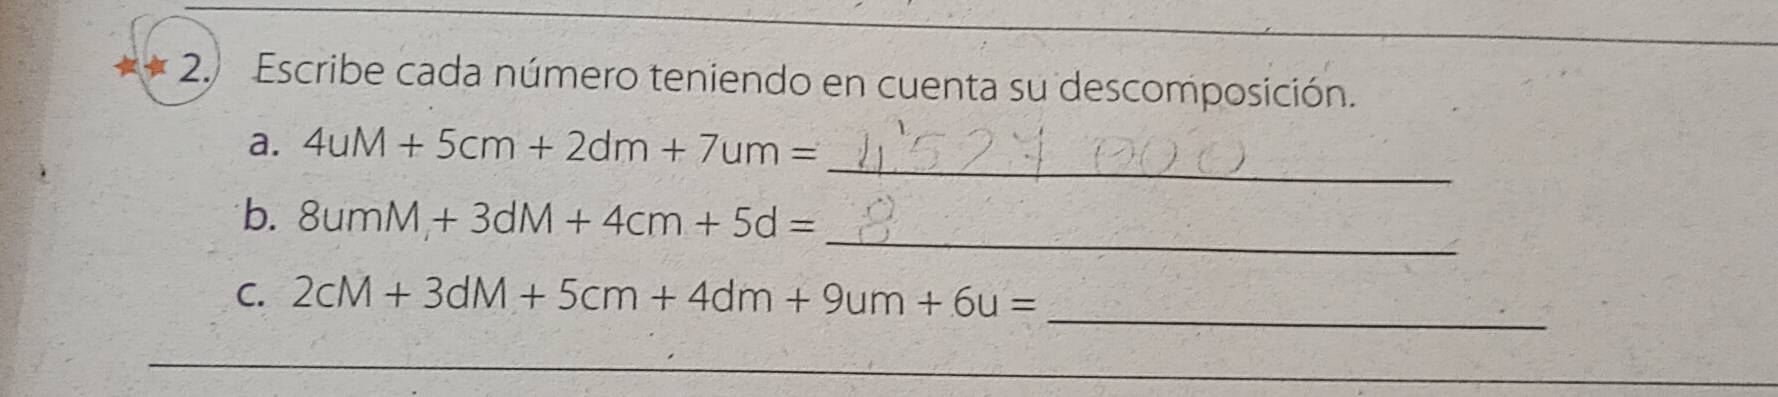 2. Escribe cada número teniendo en cuenta su descomposición.
a. 4uM + 5cm + 2dm + 7um = 4'527 000
b. 8umM + 3dM + 4cm + 5d = 8
c. 2cM + 3dM + 5cm + 4dm + 9um + 6u =